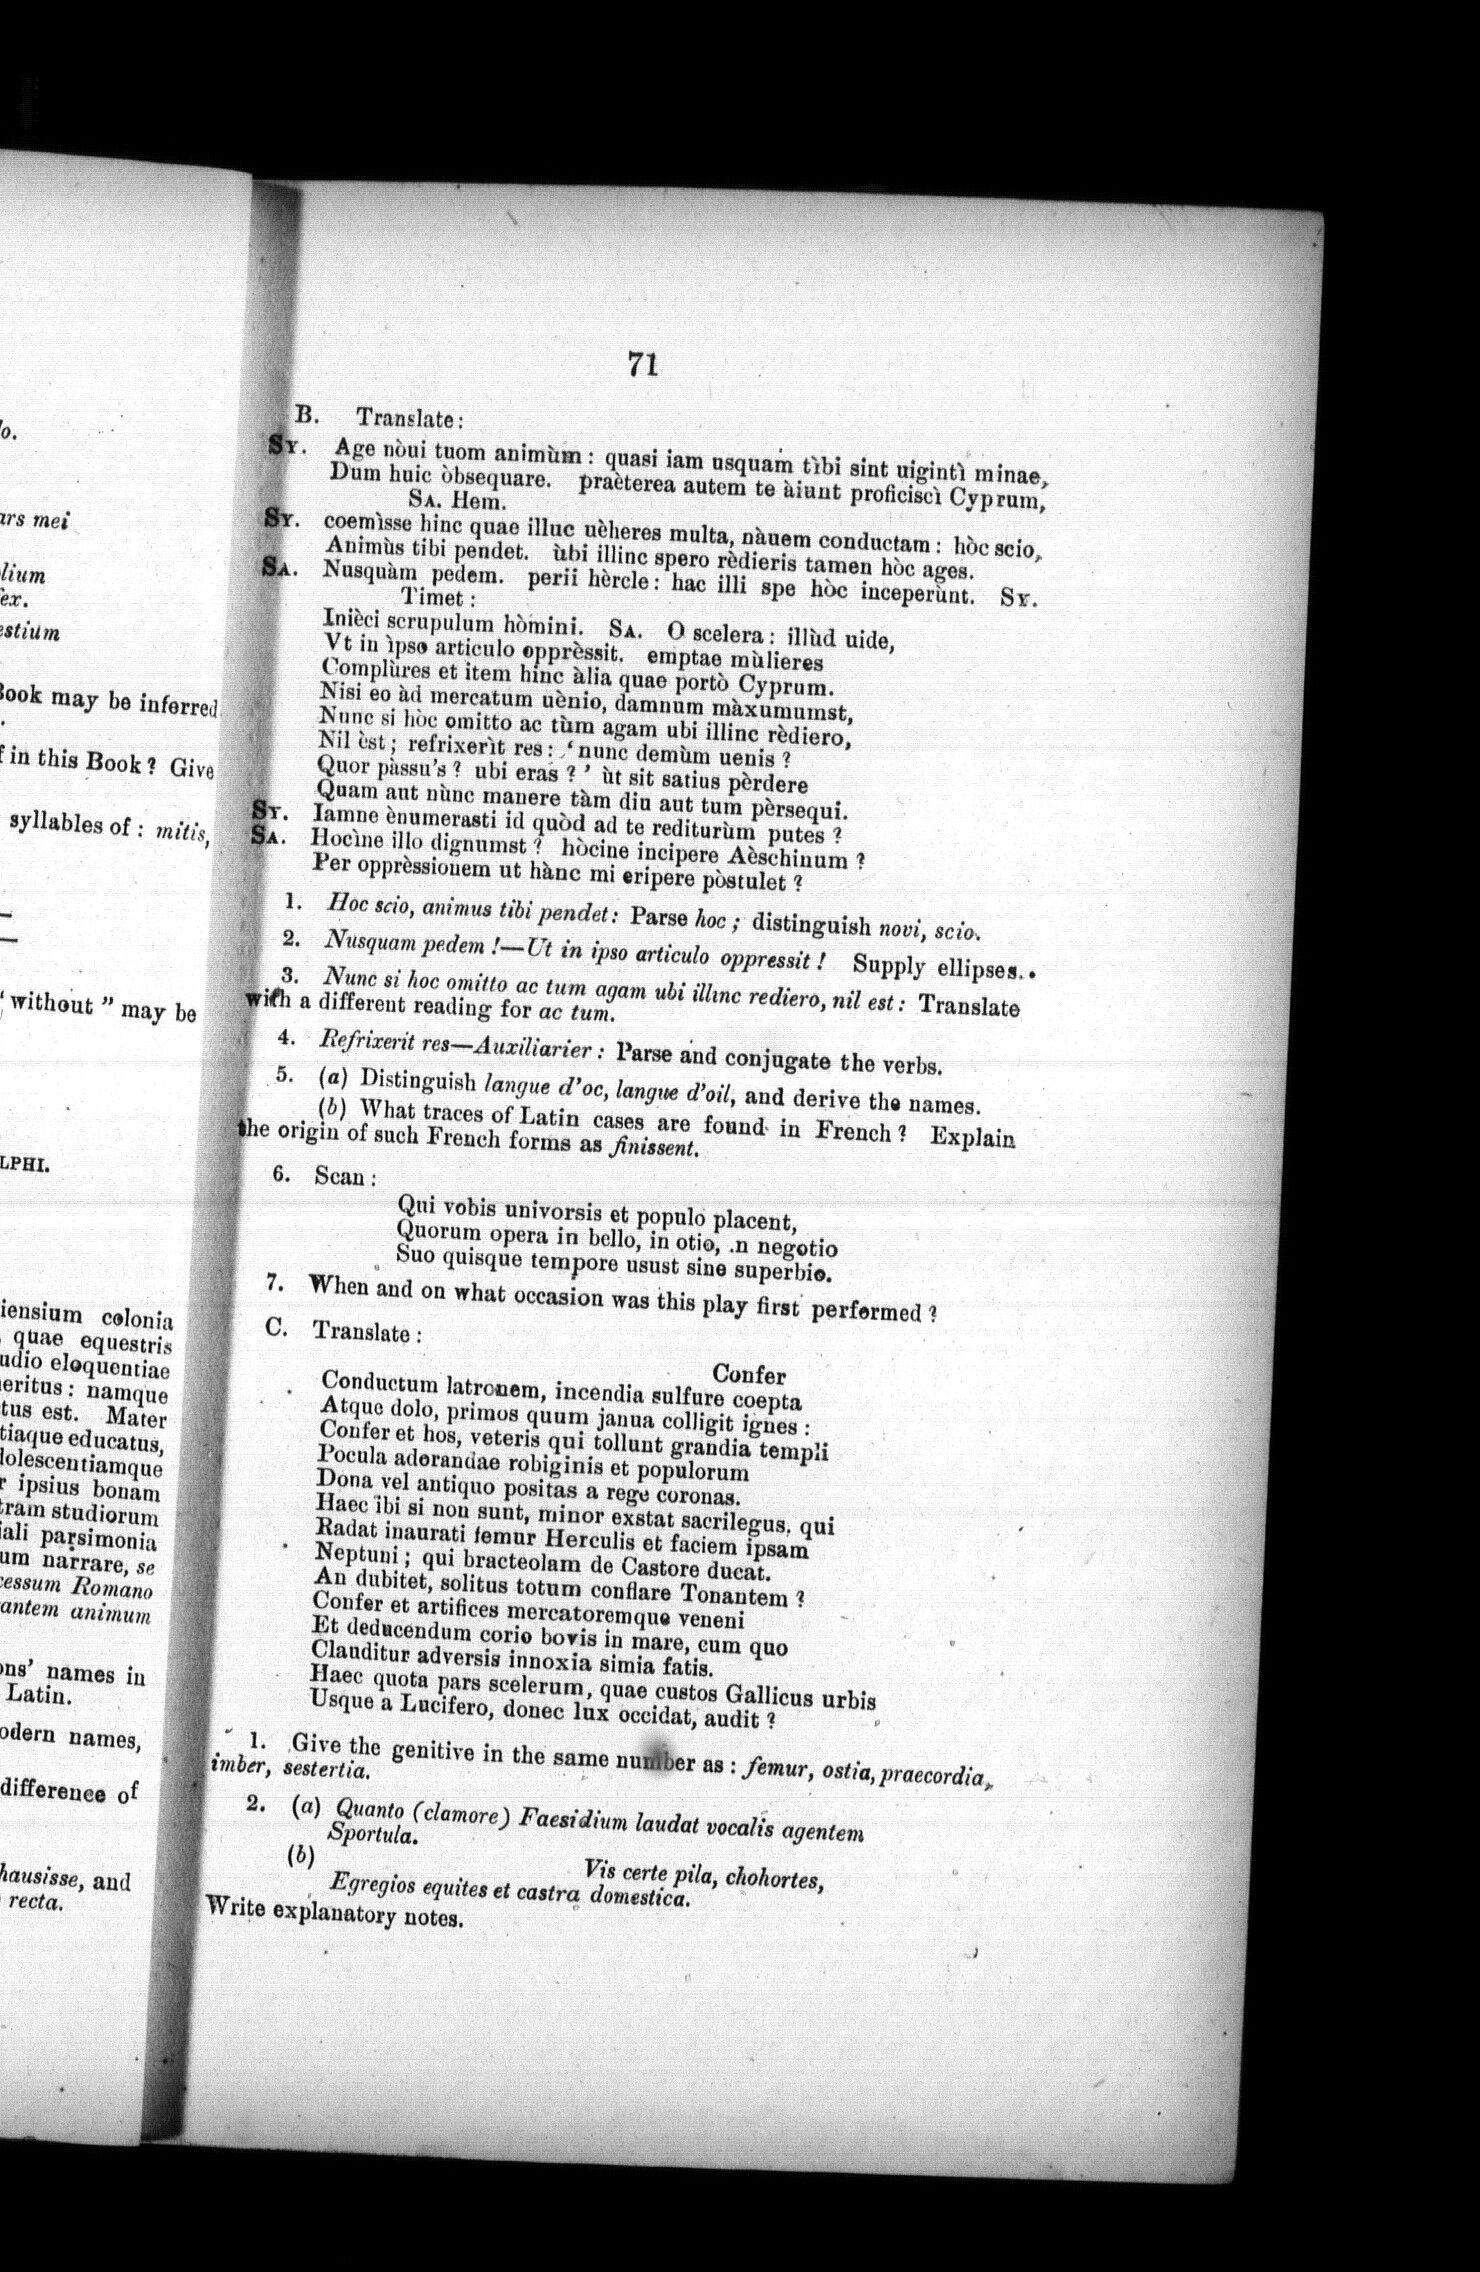 lo.
ars mei
lium
ex.
estium
Book may be inferred
f in this Book? Give
syllables of: mitis,
"without" may be
LPHI.
iensium colonia
, quae equestris
udio eloquentiae
eritus: namque
tus est. Mater
tiaque educatus,
dolescentiamque
r ipsius bonam
tram studiorum
iali parsimonia
um narrare, se
cessum Romano
antem animum
ons' names in
Latin.
odern names,
difference of
hausisse, and
recta.
71
B. Translate:
SY. Age nòui tuom animùm: quasi iam usquam tìbi sint uigintì minae,
Dum huic òbsequare. praèterea autem te àiunt proficiscì Cyprum,
SA. Hem.
SY. coemìsse hinc quae illuc uèheres multa, nàuem conductam: hòc scio,
Animùs tibi pendet. ùbi illinc spero rèdieris tamen hòc ages.
SA. Nusquàm pedem. perii hèrcle: hac illi spe hòc inceperùnt. SY.
Timet:
Inièci scrupulum hòmini. SA. O scelera: illùd uide,
Vt in ìpso articulo opprèssit. emptae mùlieres
Complùres et item hinc àlia quae portò Cyprum.
Nisi eo àd mercatum uènio, damnum màxumumst,
Nunc si hòc omitto ac tùm agam ubi illinc rèdiero,
Nil èst; refrixerìt res: 'nunc demùm uenis?
Quor pàssu's? ubi eras?' ùt sit satius pèrdere
Quam aut nùnc manere tàm diu aut tum pèrsequi.
SY. Iamne ènumerasti id quòd ad te rediturùm putes?
SA. Hocìne illo dignumst? hòcine incipere Aèschinum?
Per opprèssionem ut hànc mi eripere pòstulet?
1. Hoc scio, animus tibi pendet: Parse hoc; distinguish novi, scio.
2. Nusquam pedem!—Ut in ipso articulo oppressit! Supply ellipses.
3. Nunc si hoc omitto ac tum agam ubi illinc rediero, nil est: Translate
with a different reading for ac tum.
4. Refrixerit res—Auxiliarier: Parse and conjugate the verbs.
5. (a) Distinguish langue d'oc, langue d'oil, and derive the names.
(b) What traces of Latin cases are found in French? Explain
the origin of such French forms as finissent.
6. Scan:
Qui vobis univorsis et populo placent,
Quorum opera in bello, in otio, .n negotio
Suo quisque tempore usust sine superbio.
7. When and on what occasion was this play first performed?
C. Translate:
Confer
Conductum latronem, incendia sulfure coepta
Atque dolo, primos quum janua colligit ignes:
Confer et hos, veteris qui tollunt grandia templi
Pocula adorandae robiginis et populorum
Dona vel antiquo positas a rege coronas.
Haec ibi si non sunt, minor exstat sacrilegus, qui
Radat inaurati femur Herculis et faciem ipsam
Neptuni; qui bracteolam de Castore ducat.
An dubitet, solitus totum conflare Tonantem?
Confer et artifices mercatoremque veneni
Et deducendum corio bovis in mare, cum quo
Clauditur adversis innoxia simia fatis.
Haec quota pars scelerum, quae custos Gallicus urbis
Usque a Lucifero, donec lux occidat, audit?
1. Give the genitive in the same number as: femur, ostia, praecordia,
imber, sestertia.
2. (a) Quanto (clamore) Faesidium laudat vocalis agentem
Sportula.
(b) Vis certe pila, chohortes,
Egregios equites et castra domestica.
Write explanatory notes.